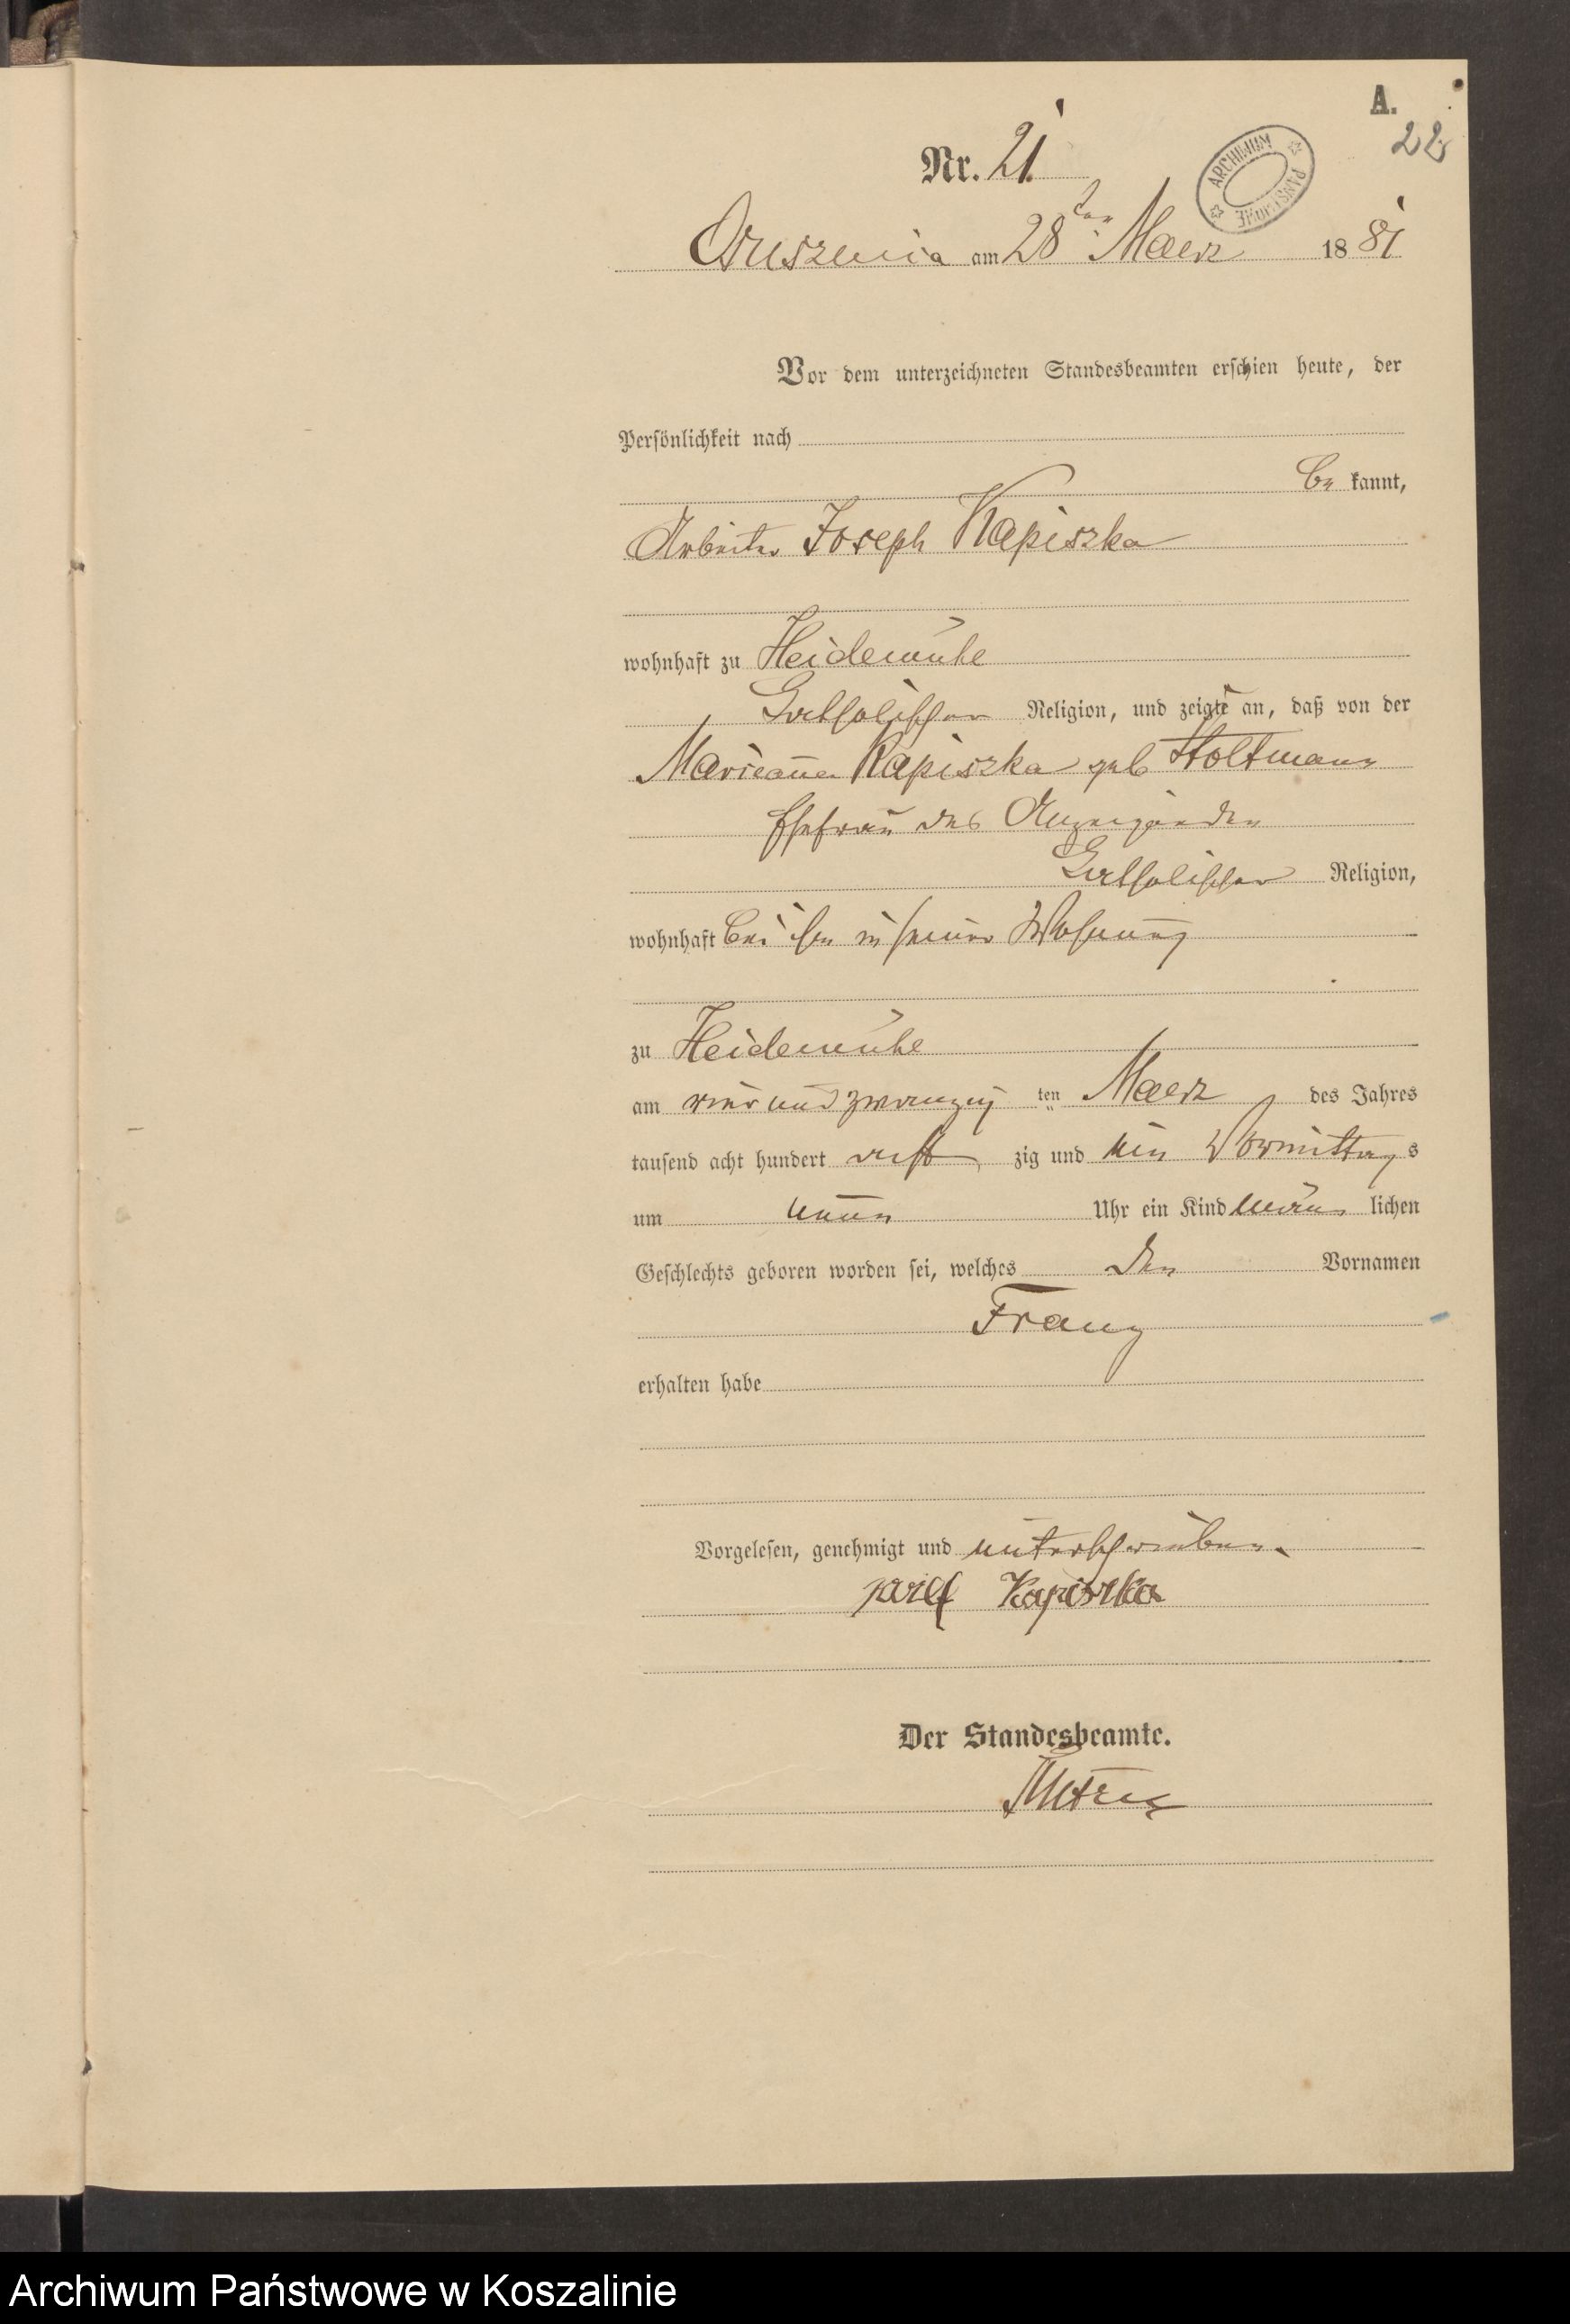 A.
22
Nr. 21.
ARCHIWUM PAŃSTWOWE
am 28ten Maerz 1881
Vor dem unterzeichneten Standesbeamten erschien heute, der
Persönlichkeit nach
be kannt,
Arbeiter Joseph Kapiszka
wohnhaft zu Heidemühle
katholischer Religion, und zeigte an, daß von der
Marianna Kapiszka geb Stoltmann
Ehefrau des Anzeigenden
katholischer Religion,
wohnhaft bei ihm in seiner Wohnung
zu Heidemühle
am vier und zwanzig ten Maerz des Jahres
tausend acht hundert acht zig und ein Vormittag s
um neun Uhr ein Kind männ lichen
Geschlechts geboren worden sei, welches den Vornamen
Franz
erhalten habe
Vorgelesen, genehmigt und unterschrieben.
Kapiszka
Der Standesbeamte.
Archiwum Państwowe w Koszalinie